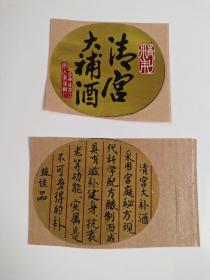 精制
清宫
大补酒
清宫大补酒
采用宫庭秘方现
代科学配方酿制而成
具有滋补健身抗衰
老等功能实属是
不可多得的补
益佳品